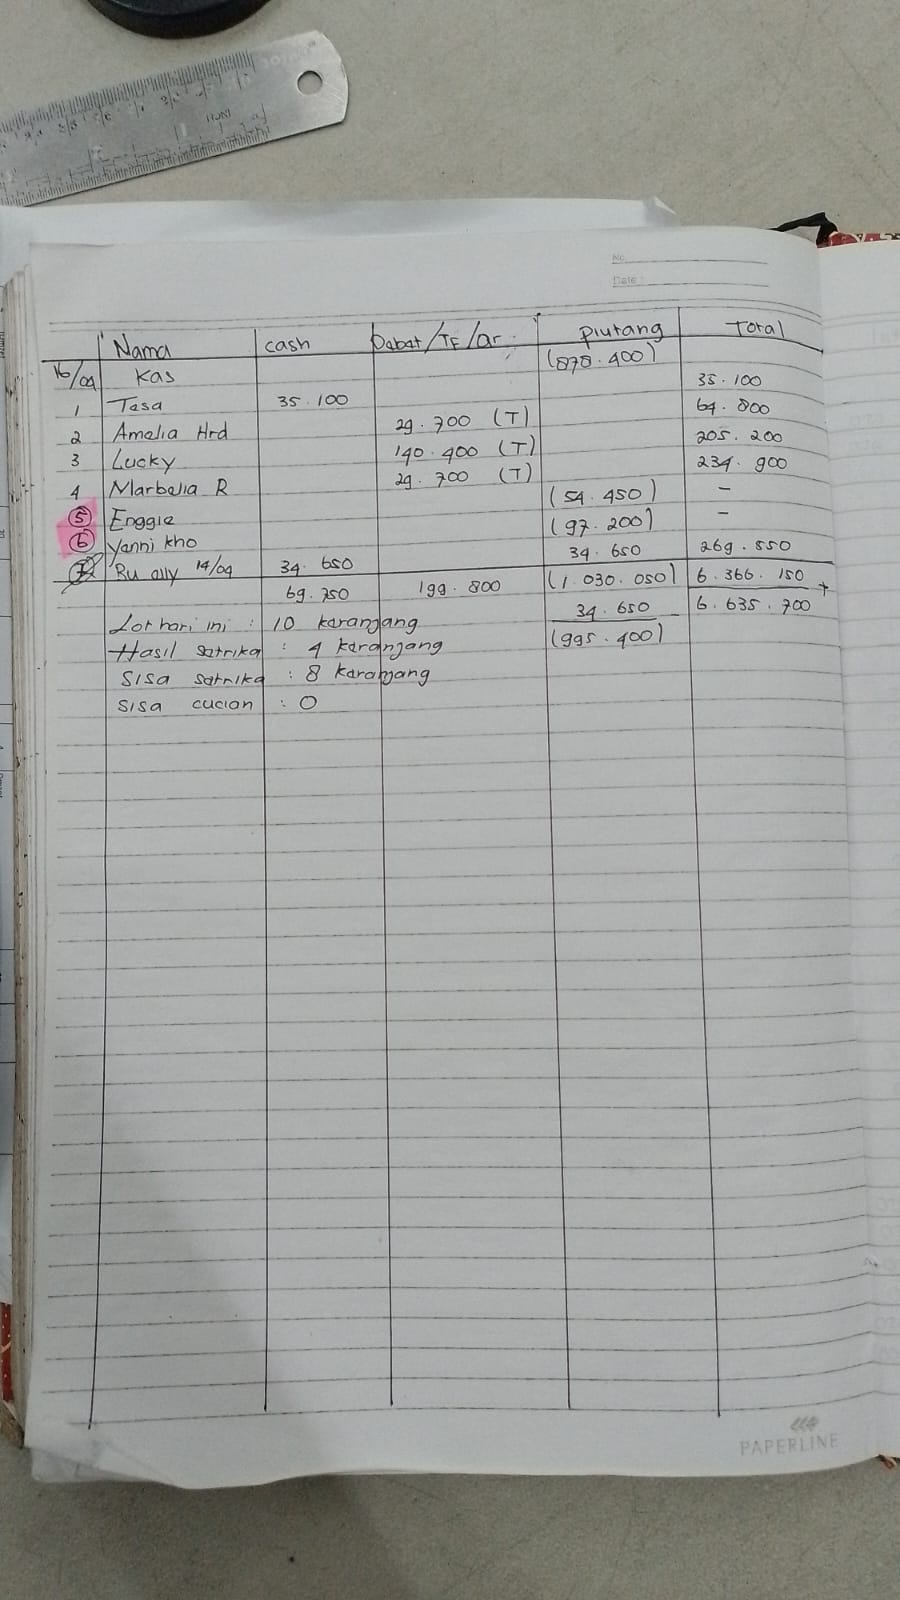 No.
Date :
Nama cash Dabat/TF/qr Piutang Total
16/04 Kas (878.400)
1 Tasa 35.100 35.100
2 Amalia Hrd 29.700 (T) 64.800
3 Lucky 140.400 (T) 205.200
4 Marbelia R 29.700 (T) 234.900
5 Enggie (54.450) -
6 Yanni kho (97.200) -
7 Bu ally 14/04 34.650 34.650 269.550
69.750 199.800 (1.030.050) 6.366.150 +
34.650 6.635.700
(995.400)
Lot hari ini : 10 karanjang
Hasil satrika : 4 karanjang
Sisa satrika : 8 karanjang
Sisa cucian : 0
PAPERLINE